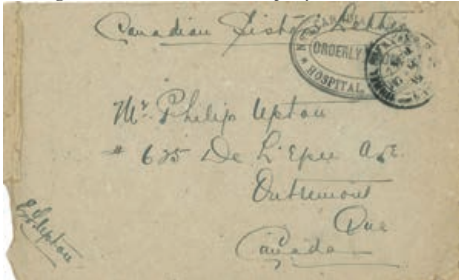 Canadian Sisters Letter
ORDERLY
HOSPITAL
Mr. Philip Upton
# 625 De L'Epee Ave.
Outremont
Que
Canada
Upton